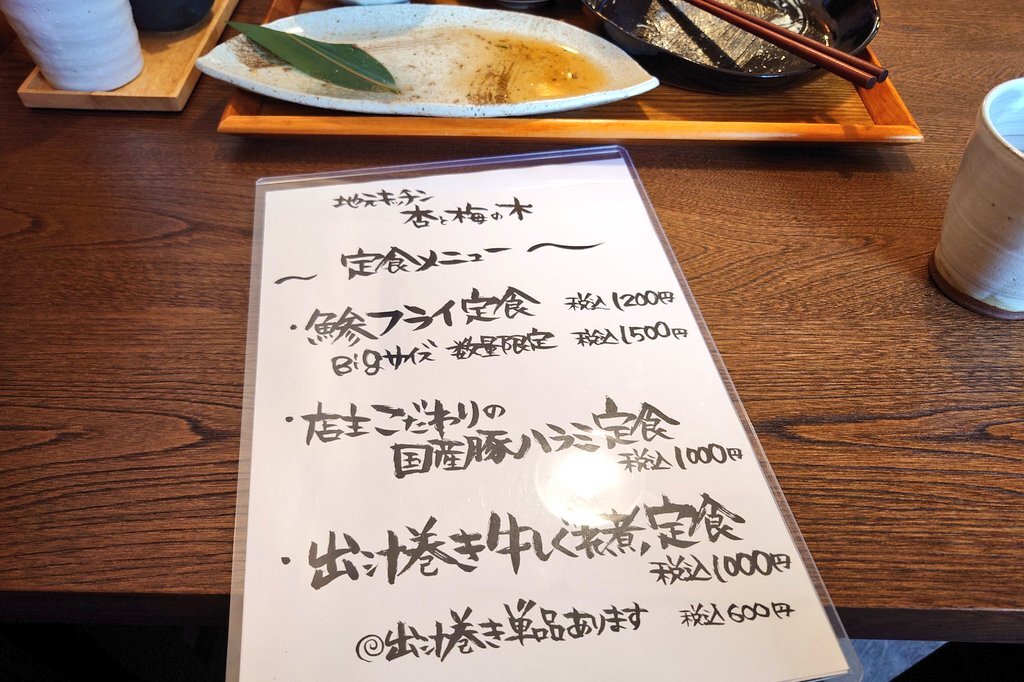 地元キッチン
杏と梅の木
〜 定食メニュー 〜
・鯵フライ定食 税込1200円
Bigサイズ 数量限定 税込1500円
・店主こだわりの
国産豚ハラミ定食
税込1000円
・出汁巻き牛しぐれ煮定食
税込1000円
@出汁巻き単品あります 税込600円